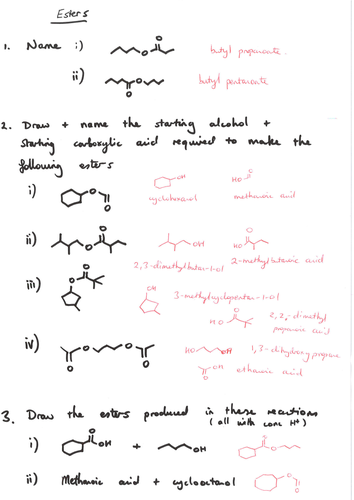 Esters
1. Name i)
butyl propanoate.
ii)
butyl pentanoate
2. Draw + name the starting alcohol +
starting carboxylic acid required to make the
following esters
i)
OH
HO
O
cyclohexanol
methanoic acid
ii)
OH
HO
2,3-dimethylbutan-1-ol
2-methylbutanoic acid
iii)
OH
3-methylcyclopentan-1-ol
HO
2,2,-dimethyl
propanoic acid
iv)
HO
OH
1,3-dihydroxy propane
OH
ethanoic acid
3. Draw the esters produced in these reactions
(all with conc H+)
i)
OH
+
OH
ii) Methanoic acid + cyclooctanol